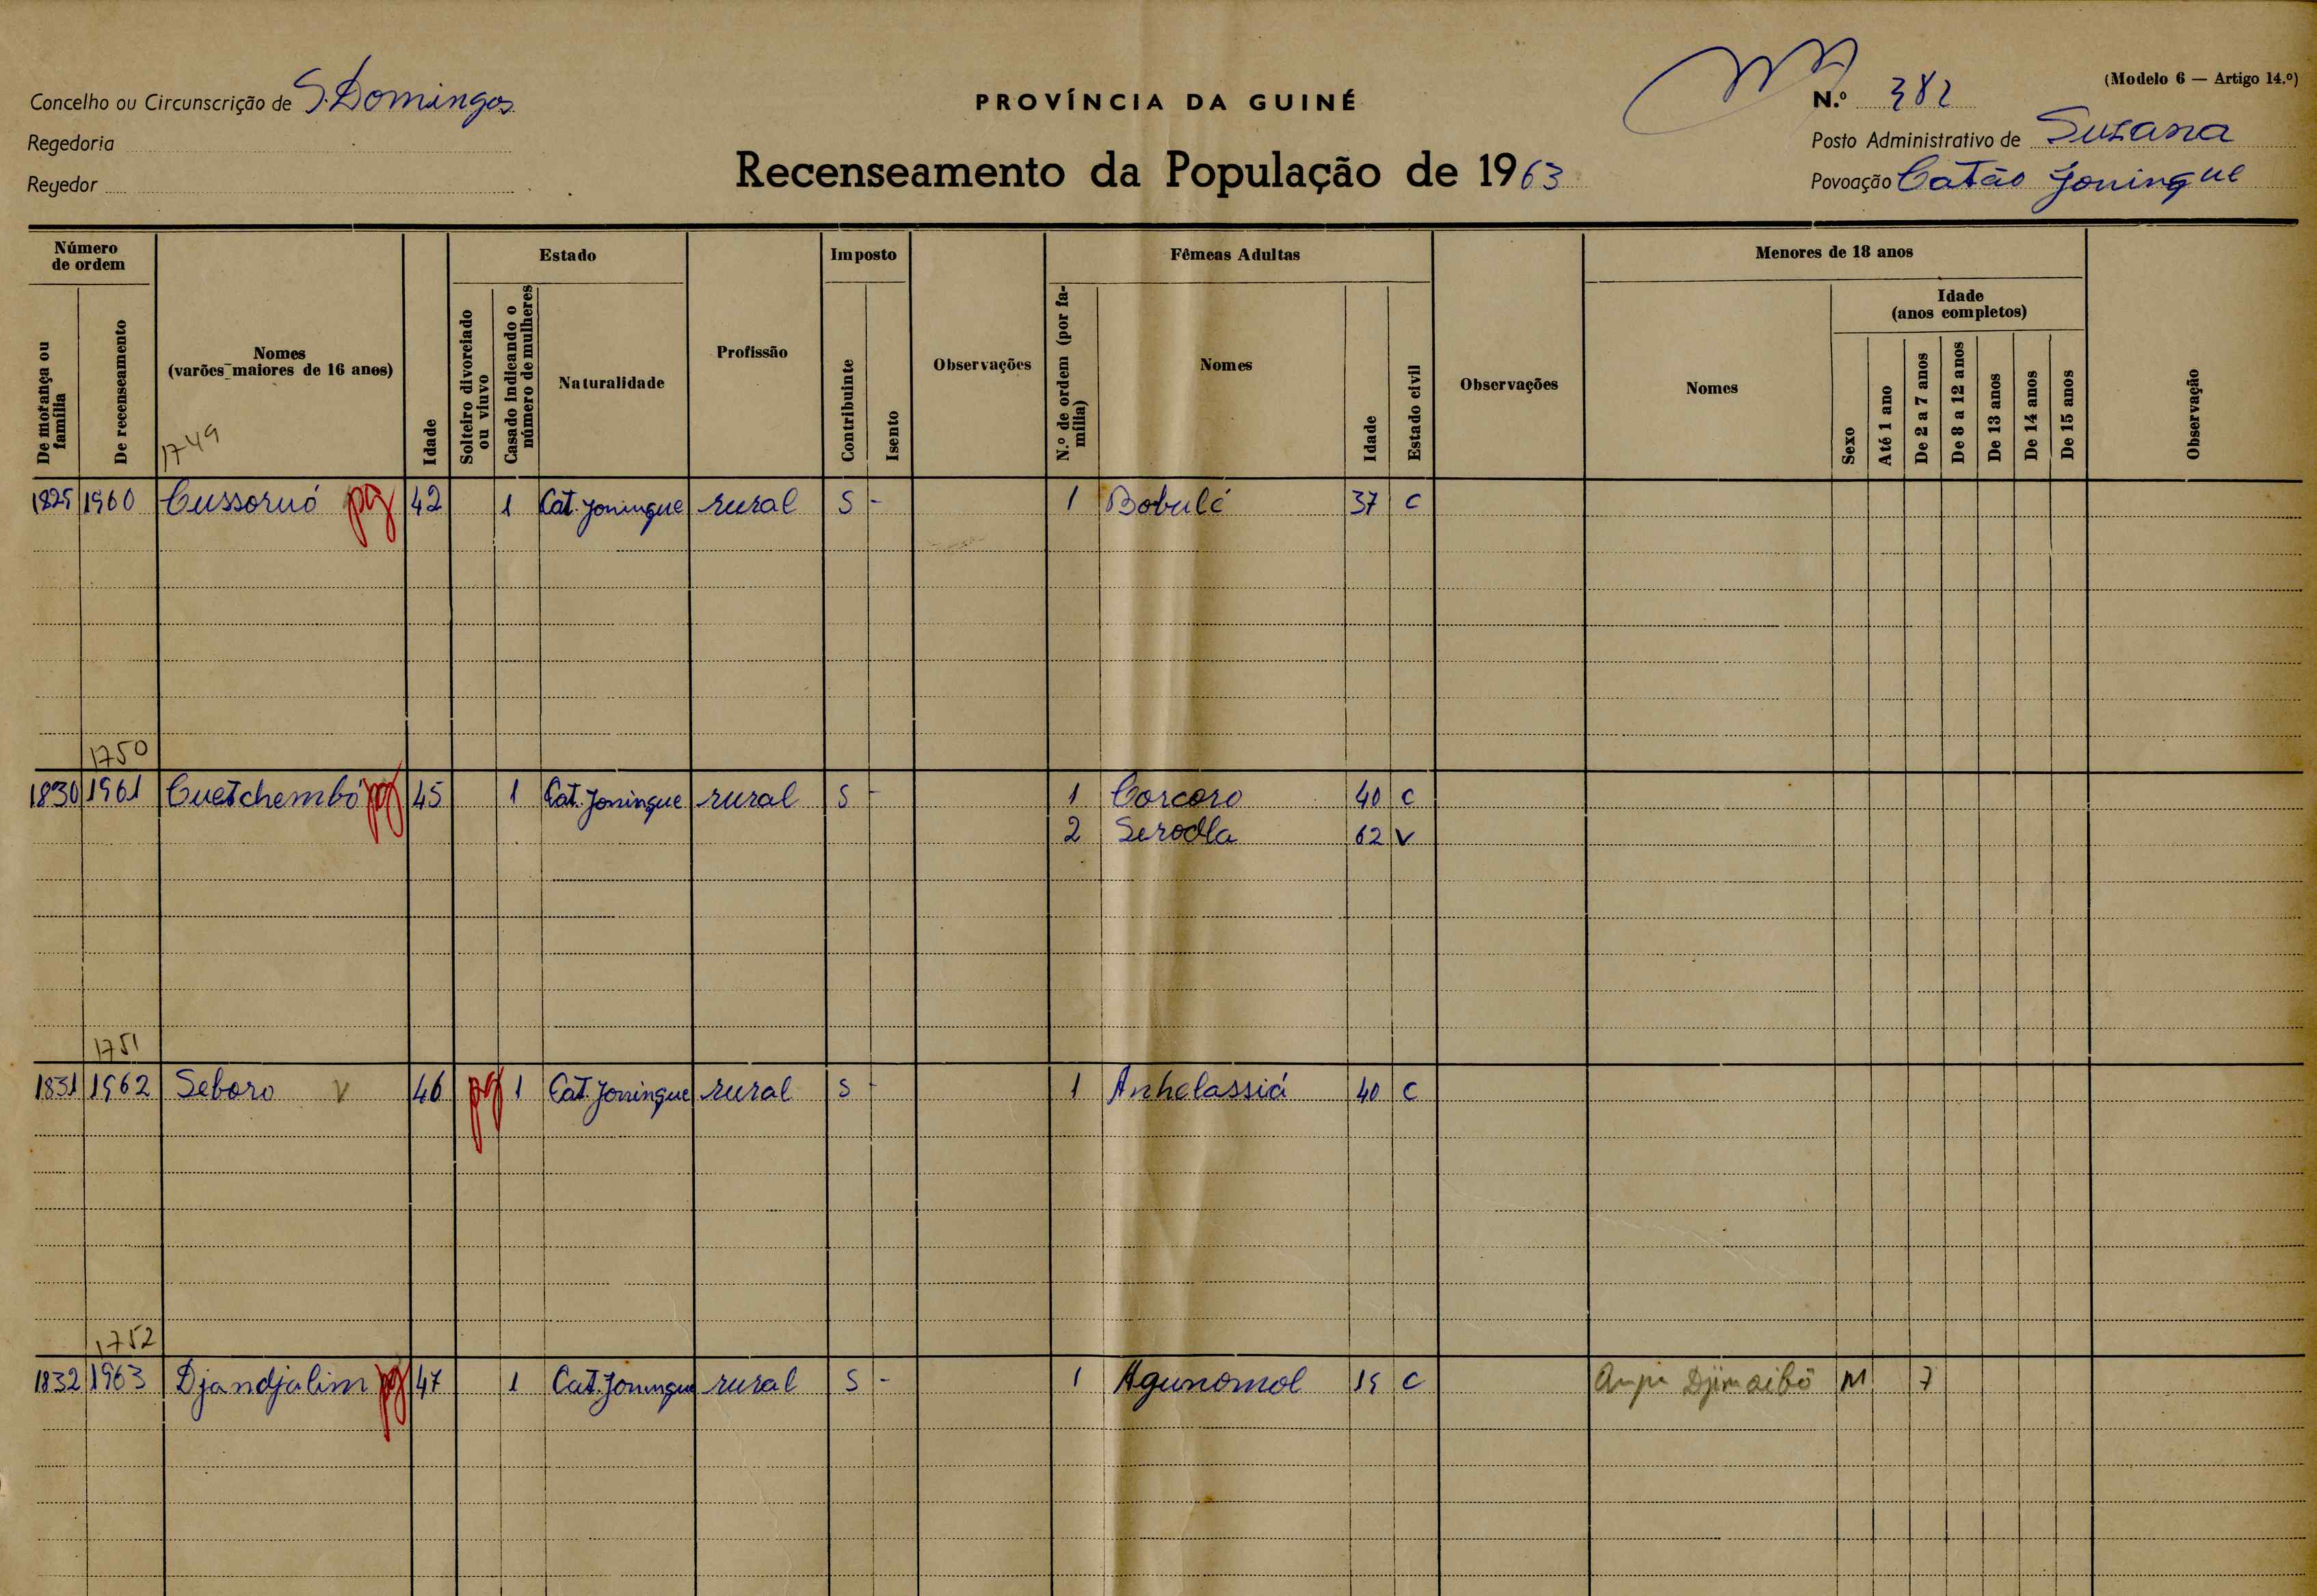 (Modelo 6 — Artigo 14.º)
Concelho ou Circunscrição de S. Domingos
PROVÍNCIA DA GUINÉ
N.º 382
Regedoria
Posto Administrativo de Susana
Regedor
Recenseamento da População de 1963
Povoação Catão Joningue
Número de ordem
Estado
Imposto
Fêmeas Adultas
Menores de 18 anos
Idade (anos completos)
De morança ou família
De recenseamento
Nomes (varões maiores de 16 anos)
Idade
Solteiro divorciado ou viuvo
Casado indicando o número de mulheres
Naturalidade
Profissão
Contribuinte
Isento
Observações
N.º de ordem (por família)
Nomes
Idade
Estado civil
Observações
Nomes
Sexo
Até 1 ano
De 2 a 7 anos
De 8 a 12 anos
De 13 anos
De 14 anos
De 15 anos
Observação
1749
1829 1960 Cussoruó pg 42 1 Cat. Joningue rural S - 1 Bobulé 37 C
1750
1830 1961 Cuetchembó pg 45 1 Cat. Joningue rural S - 1 Corcoro 40 C
2 Serodla 62 V
1751
1831 1962 Seboro V 46 pg 1 Cat. Joningue rural S - 1 Anhelassiá 40 C
1752
1832 1963 Djandjalim pg 47 1 Cat. Joningue rural S - 1 Agunomol C Djimaibó M 7